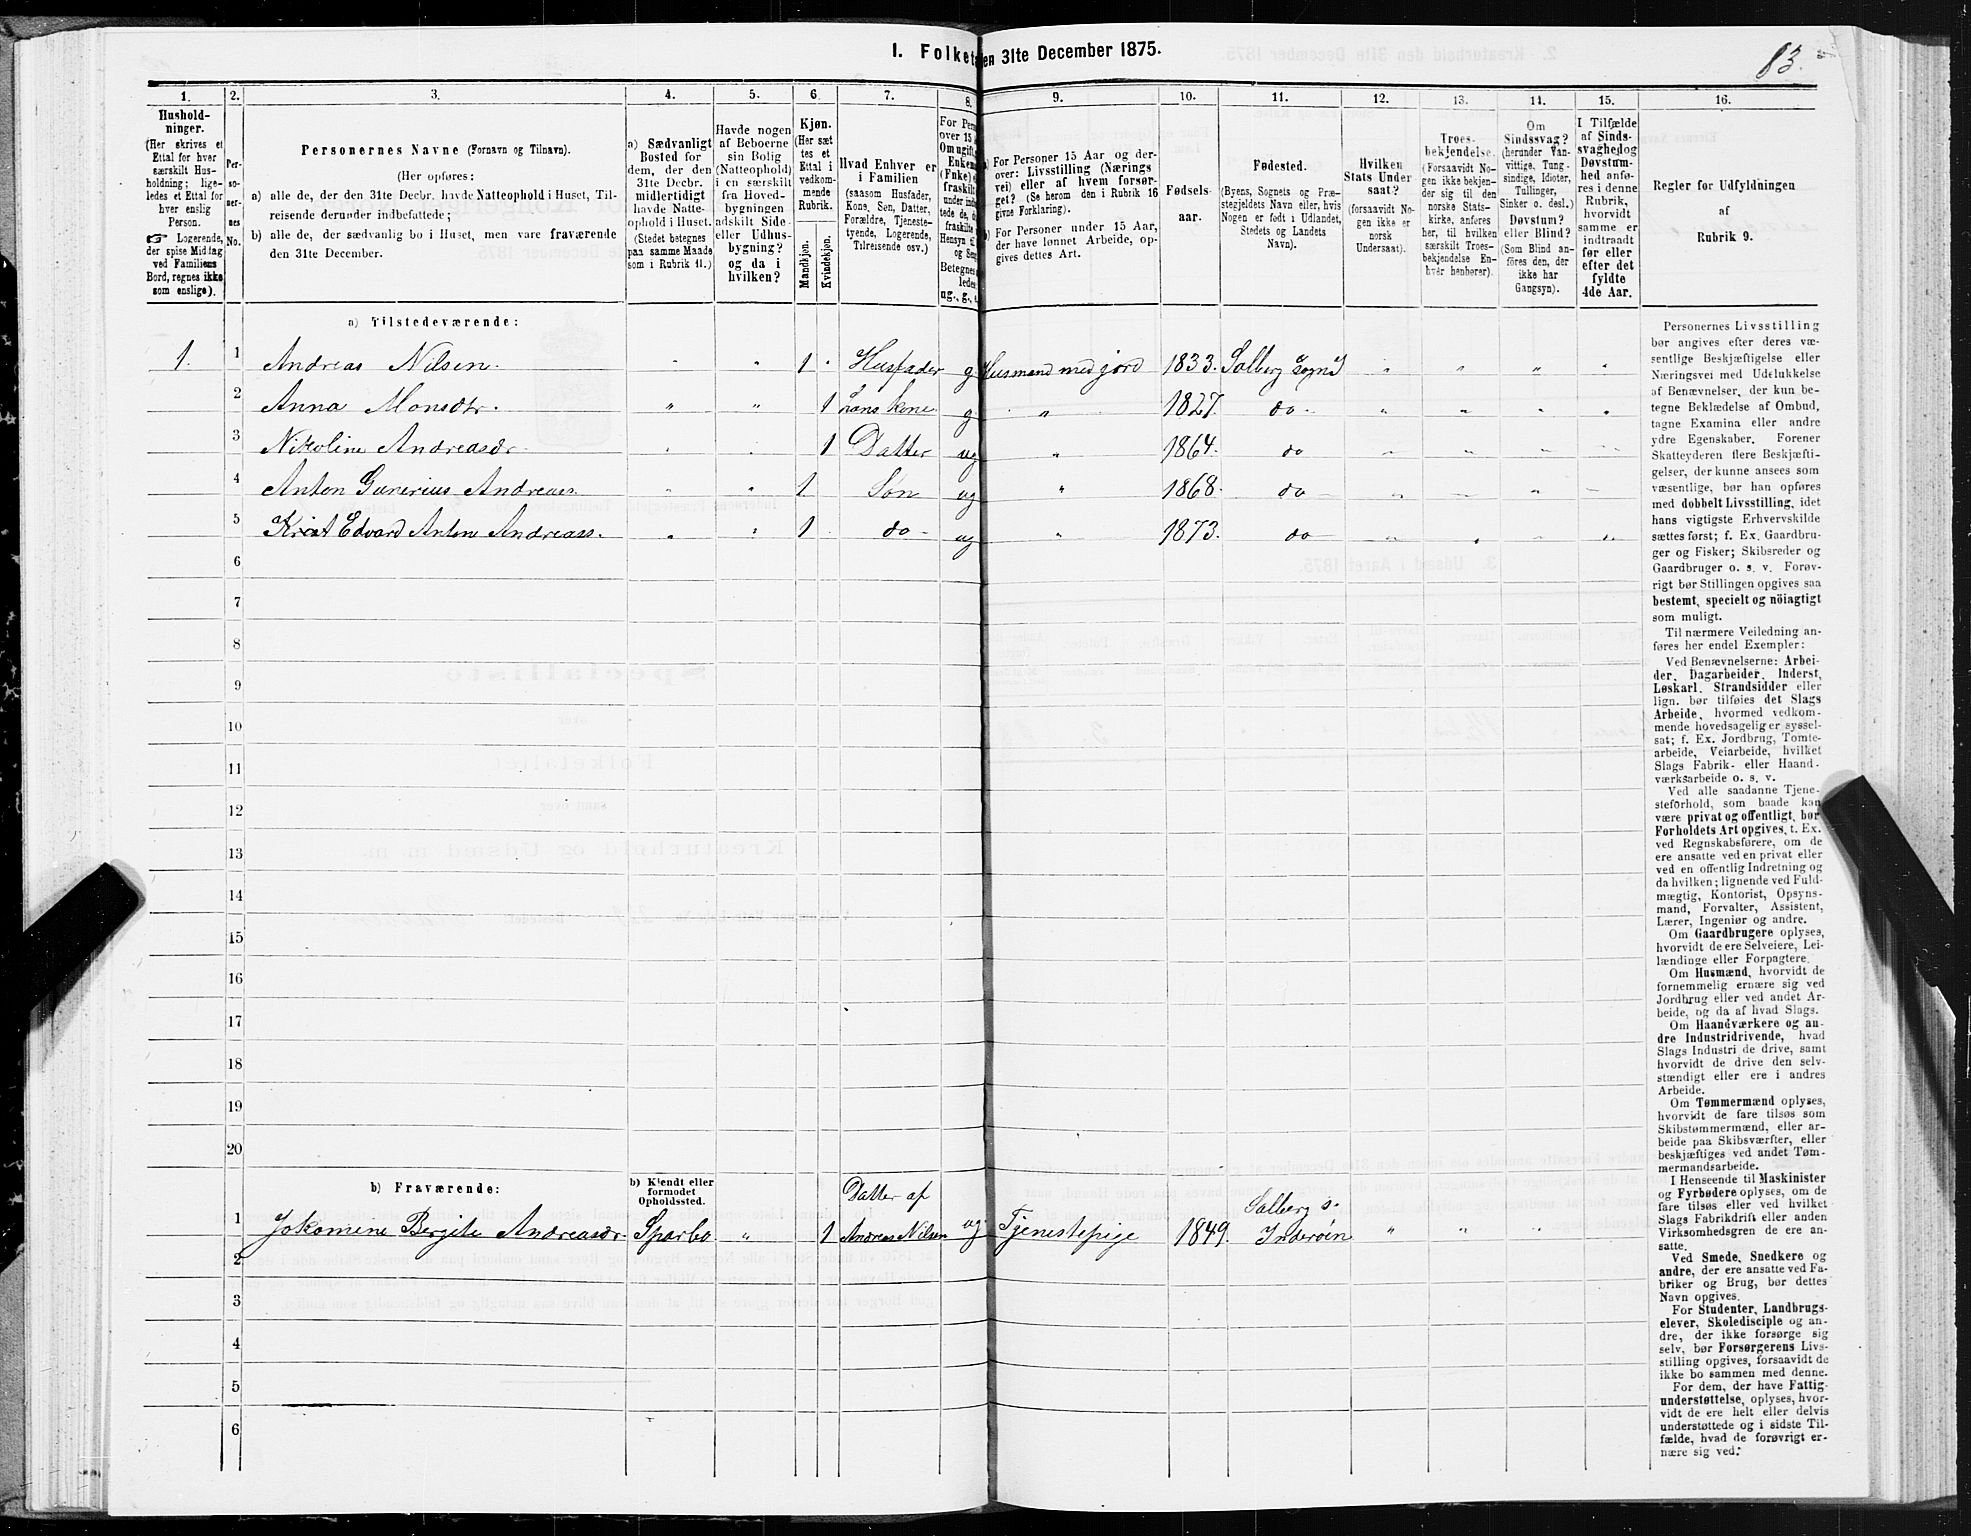 I. Folket en 31te December 1875.
83.
1. 2. 3. 4. 5. 6. 7. 8. 9. 10. 11. 12. 13. 14. 15. 16.
Hushold-
ninger.
(Her skrives et
Ettal for hver
særskilt Hus-
holdning; lige-
ledes et Ettal for
hver enslig
Person.
☞ Logerende,
der spise Middag
ved Familiens
Bord, regnes ikke
som enslige).
Per-
so-
ner-
nes
No.
Personernes Navne (Fornavn og Tilnavn).
(Her opføres:
a) alle de, der den 31te Decbr. havde Natteophold i Huset, Til-
reisende derunder indbefattede;
b) alle de, der sædvanlig bo i Huset, men vare fraværende
den 31te December.
a) Sædvanligt
Bosted for
dem, der den
31te Decbr.
midlertidigt
havde Natte-
ophold i Huset.
(Stedet betegnes
paa samme Maade
som i Rubrik 11.)
Havde nogen
af Beboerne
sin Bolig
(Natteophold)
i en særskilt
fra Hoved-
bygningen
adskilt Side-
eller Udhus-
bygning?
og da i
hvilken?
Kjøn.
(Her sæt
tes et
Ettal i
vedkom-
mende
Rubrik.
Mandkjøn.
Kvindekjøn.
Hvad Enhver er
i Familien
(saasom Husfader,
Kone, Søn, Datter,
Forældre, Tjeneste-
tyende, Logerende,
Tilreisende osv.)
For Pers
over 15
Om ugift,
Enkem
(Fnke)
fraskilt
under ind
tede de, d
fraskilte
Hensyn t.
og Sen
Betegnes
ledes
ug., g., e.
a) For Personer 15 Aar og der-
over: Livsstilling (Nærings
vei) eller af hvem forsør-
get? (Se herom den i Rubrik 16
givne Forklaring).
b) For Personer under 15 Aar,
der have lønnet Arbeide, op-
gives dettes Art.
Fødsels-
aar.
Fødested.
(Byens, Sognets og Præ-
stegjeldets Navn eller, hvis
Nogen er født i Udlandet,
Stedets og Landets
Navn).
Hvilken
Stats Under
saat?
(forsaavidt No-
gen ikke er
norsk
Undersaat).
Troes-
bekjendelse.
(Forsaavidt No-
gen ikke bekjen-
der sig til den
norske Stats-
kirke, anføres
her, til hvilken
særskilt Troes-
bekjendelse En-
hver henhører).
Om
Sindssvag?
(herunder Van-
vittige, Tung-
sindige, Idioter,
Tullinger,
Sinker o. desl.)
Døvstum?
eller Blind?
(Som Blind an-
føres den, der
ikke har
Gangsyn).
I Tilfælde
af Sinds-
svaghed og
Døvstum-
hed anfø-
res i denne
Rubrik,
hvorvidt
samme er
indtraadt
før eller
efter det
fyldte
4de Aar.
Regler for Udfyldningen
af
Rubrik 9.
a) Tilstedeværende:
1. 1 Andreas Nilsen. " " 1 " Husfader g Husmand med jord 1833. Salberg sogn " " " "
2 Anna Monsdtr. " " 1 hans kone. g " 1827. do " " " "
3 Nikoline Andreasdr. " " 1 Datter ug " 1864. do " " " "
4 Anton Gunerius Andreas. " " 1 Søn ug " 1868. do " " " "
5 Krist Edvard Anton Andreass. " " 1 do ug " 1873. do " " " "
6
7
8
9
10
11
12
13
14
15
16
17
18
19
20
b) Fraværende:
b) Kjendt eller
formodet
Opholdssted.
Datter af
Salberg s.
1 Jokomine Bergite Andreasdr. Sparbo " 1 Andreas Nilsen ug. Tjenestepige 1849. Inderøen " " "
2
3
4
5
6
Personernes Livsstilling
bør angives efter deres væ-
sentlige Beskjæftigelse eller
Næringsvei med Udelukkelse
af Benævnelser, der kun be-
tegne Beklædelse af Ombud,
tagne Examina eller andre
ydre Egenskaber. Forener
Skatteyderen flere Beskjæfti-
gelser, der kunne ansees som
væsentlige, bør han opføres
med dobbelt Livsstilling, idet
hans vigtigste Erhvervskilde
sættes først; f. Ex. Gaardbru-
ger og Fisker; Skibsreder og
Gaardbruger o. s. v. Forøv-
rigt bør Stillingen opgives saa
bestemt, specielt og nöiagtigt
som muligt.
Til nærmere Veiledning an-
føres her endel Exempler:
Ved Benævnelserne: Arbei-
der, Dagarbeider, Inderst,
Løskarl, Strandsidder eller
lign. bør tilføies det Slags
Arbeide, hvormed vedkom-
mende hovedsagelig er syssel-
sat; f. Ex. Jordbrug, Tomte-
arbeide, Veiarbeide, hvilket
Slags Fabrik- eller Haand-
værksarbeide o. s. v.
Ved alle saadanne Tjene-
steforhold, som baade kan
være privat og offentligt, bør
Forholdets Art opgives, t. Ex.
ved Regnskabsførere, om de
ere ansatte ved en privat eller
ved en offentlig Indretning og
da hvilken; lignende ved Fuld-
mægtig, Kontorist, Opsyns-
mand, Forvalter, Assistent,
Lærer, Ingeniør og andre.
Om Gaardbrugere oplyses,
hvorvidt de ere Selveiere, Lei-
lændinge eller Forpagtere.
Om Husmænd, hvorvidt de
fornemmelig ernære sig ved
Jordbrug eller ved andet Ar-
beide, og da af hvad Slags.
Om Haandværkere og an-
dre Industridrivende, hvad
Slags Industri de drive, samt
hvorvidt de drive den selv-
stændigt eller ere i andres
Arbeide.
Om Tømmermænd oplyses,
hvorvidt de fare tilsøs som
Skibstømmermænd, eller ar-
beide paa Skibsværfter, eller
beskjæftiges ved andet Tøm-
mermandsarbeide.
I Henseende til Maskinister
og Fyrbødere oplyses, om de
fare tilsøs eller ved hvilket
Slags Fabrikdrift eller anden
Virksomhedsgren de ere an-
satte.
Ved Smede, Snedkere og
andre, der ere ansatte ved Fa-
briker og Brug, bør dettes
Navn opgives.
For Studenter, Landbrugs-
elever, Skoledisciple og an-
dre, der ikke forsørge sig
selv, bør Forsørgerens Livs-
stilling opgives, forsaavidt de
ikke bo sammen med denne.
For dem, der have Fattig-
understøttelse, oplyses, hvor-
vidt de ere helt eller delvis
understøttede og i sidste Til-
fælde, hvad de forøvrigt er-
nære sig ved.